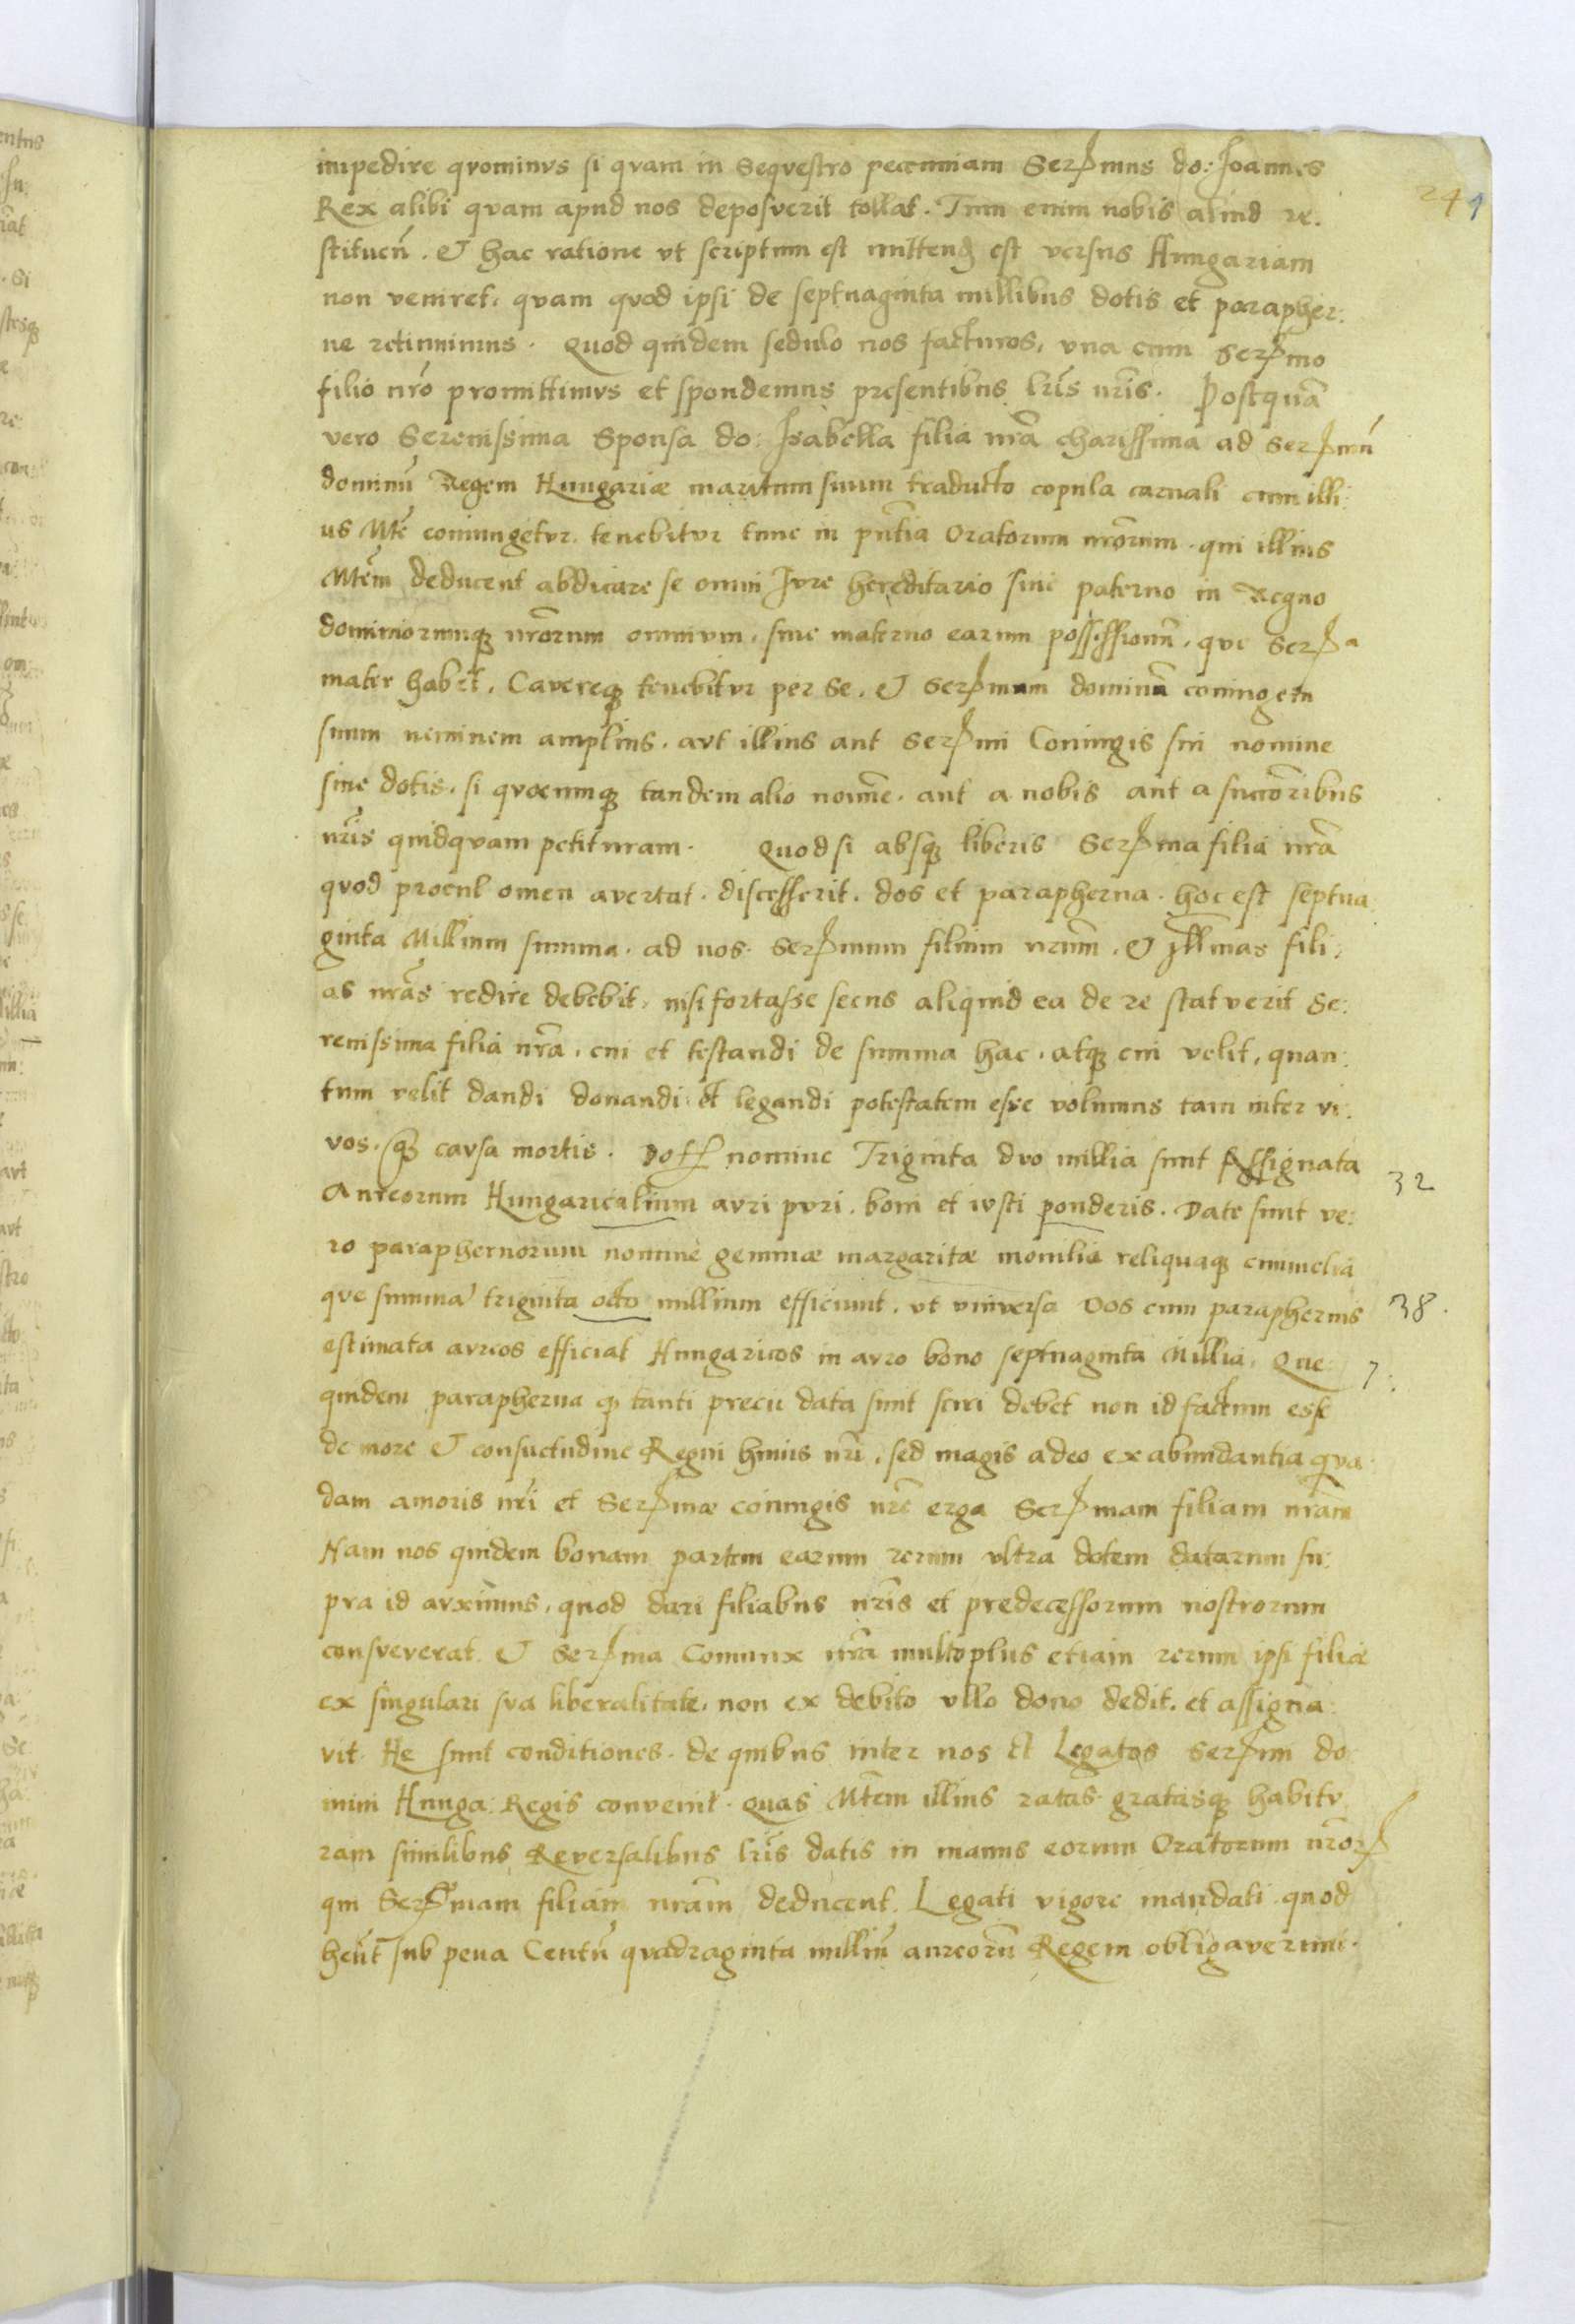 241
impedire qvominvs si qvam in Seqvestro pecuniam Serꝭmus do: Joannes
Rex alibi qvam apud nos deposverit tollat. Tum enim nobis aliud re.
stituen̄. et hac ratione vt scriptum est mittenḍ est versus Hungariam
non veniret. qvam qvod ipsi de septuaginta millibus dotis et parapher:
ne retinuimus. Quod quidem sedulo nos facturos, vna cum Serꝭmo
filio nr̄o promittimvs et spondemus presentibus lr̄is nr̄is. Postquā
vero Serenissima Sponsa do: Isabella filia nrā charissima ad Serꝭmū
dominū Regem Hungariæ maritum suum traducto copula carnali cum illi:
us Mte coniungetvr. tenebitvr tunc in pn̄tia Oratorum nrōrum. qui illius
Mtēm deducent abdicare se omni Jvre hereditario siue paterno in Regno
dominiorumqꝫ nrōrum omnivm, siue materno earum possessionū, que Serꝭa
mater habet. Cavereqꝫ tenebitvr per se. et Serꝭmum dominū coniugem
suum neminem amplius. avt illius aut Serꝭmi Coniugis sui nomine
siue dotis. si qvocumqꝫ tandem alio noīme. aut a nobis aut a successōribus
nr̄is quidqvam petituram. Quod si absqꝫ liberis Serꝭma filia nrā
qvod procul omen avertat. discesserit. dos et parapherna. hoc est septua
ginta Millium summa. ad nos. Serꝭmum filium nrūm. et Illmas fili:
as nrās redire debebit, nisi fortasse secus aliquid ea de re statverit Se:
renissima filia nrā. cui et testandi de summa hac. atqꝫ cui velit, quan:
tum velit dandi donandi et legandi potestatem esse volumus tam inter vi.
vos. qꝫ cavsa mortis. Dotꝭ nomine Triginta dvo millia sunt Assignata
32
Aureorum Hungaricalium avri pvri. boni et ivsti ponderis. Date sunt ve:
ro paraphernorum nomine gemmæ margaritæ monilia reliquaqꝫ cimmelia
que summā triginta octo millium efficiunt. vt vniversa Dos cum paraphernis
38.
estimata avreos efficiat Hungaricos in avro bono septuaginta Millia. Que
7.
quidem parapherna qꝫ tanti precii data sunt sciri debet non id factum esse
de more et consuetudine Regni huius nrī, sed magis adeo ex abundantia qva
dam amoris nrī et Serꝭmæ coniugis nrē erga Serꝭmam filiam nrām
Nam nos quidem bonam partem earum rerum vltra dotem datarum su:
pra id avximus, quod dari filiabus nrīs et predecessorum nostrorum
consveverat et Serꝭma Coniunx nrā multo plus etiam rerum ipsi filiæ
ex singulari sva liberalitate, non ex debito vllo dono dedit. et assigna:
vit. He sunt conditiones. de quibus inter nos et Legatos Serꝭmi do
mini Hunga: Regis convenit. quas Mtēm illius ratas gratasqꝫ habitv
ram similibus Reversalibus lr̄is datis in manus eorum Oratorum nrōrꝭ
qui Serꝭmam filiam nrām deducent. Legati vigore mandati quod
hēnt sub pena Centū qvadraginta milliū aureorū Regem obligaverunt.